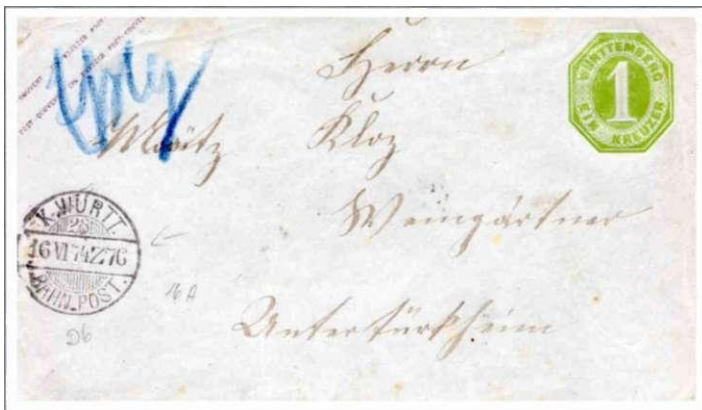 Herrn
Moritz Kloz
Weingärtner
Untertürkheim
WÜRTTEMBERG
1
EIN KREUZER
K. WÜRTT.
26
16 VI 74 Z 76
BAHN_POST.
16 A
26